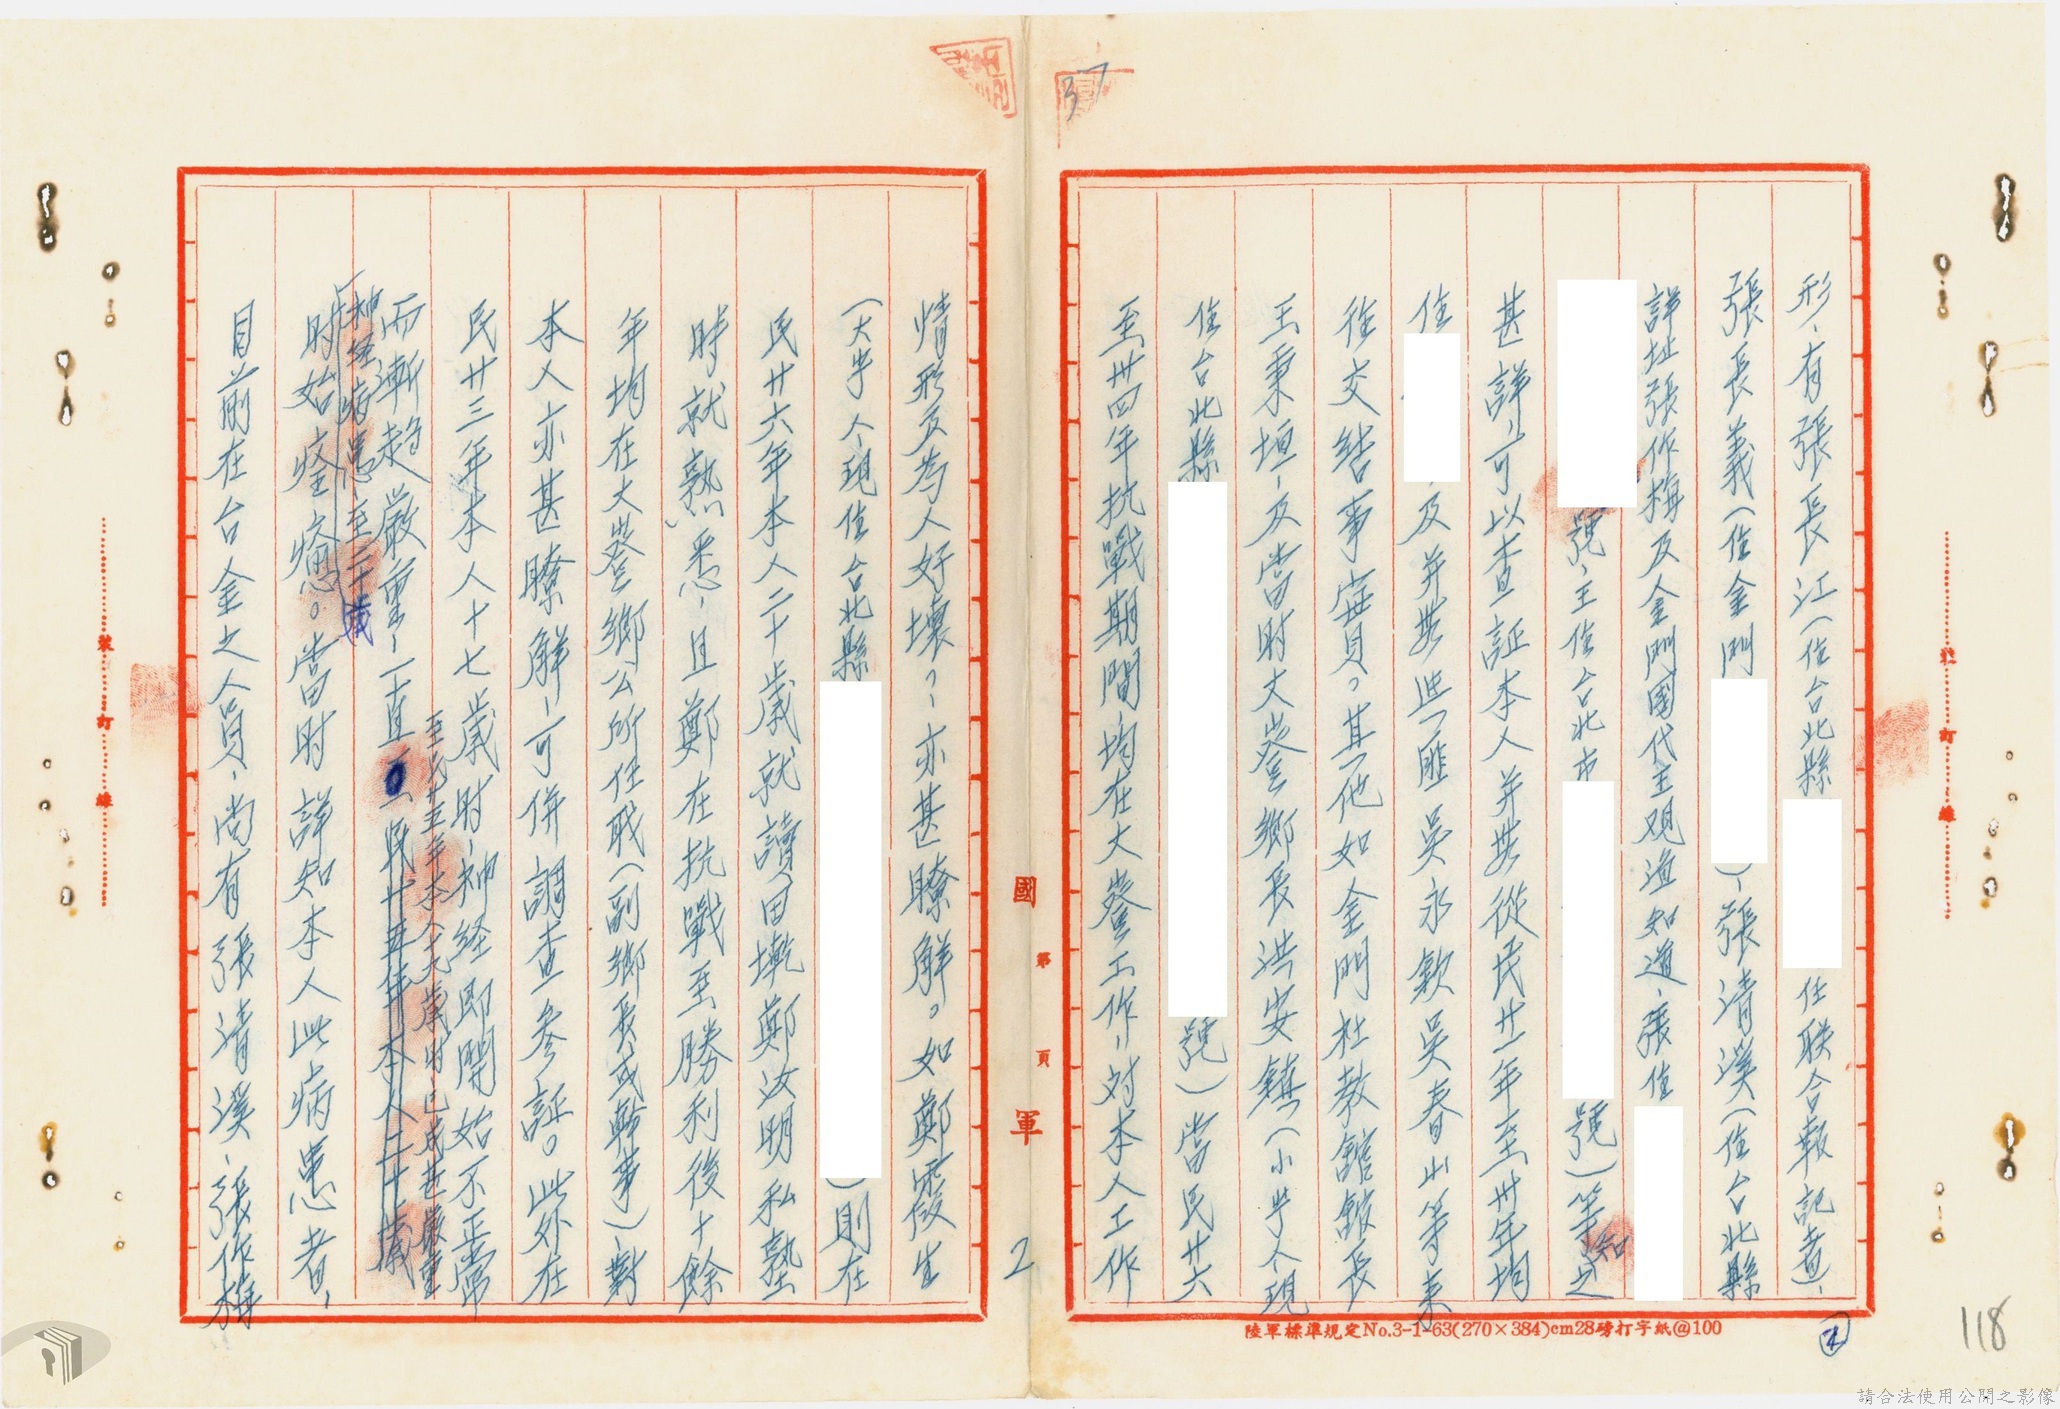 形、有張長江(住台北縣 任联合報記者)、
張長義(住金門 )、張清漢(住台北縣
詳址張作梅及金門國代王观漁知道、張住
號、王住台北市 號)等知之
甚詳、可以查証本人并無從民廿一年至卅年均
住 、及并無與匪吳永歎吳春山等来
往交結事實。其他如金門社教館館長
王秉垣、及當时大嶝鄉長洪安鎮(小嶝人、現
住台北縣 號)當民廿六
至卅四年抗戰期間均在大嶝工作、对本人工作
情形及為人好壞?、亦甚瞭解。如鄭霞生
(大嶝人、現住台北縣 )則在
民廿六年本人二十歲就讀田墘鄭汝明私塾
时就熟悉、且鄭在抗戰至勝利後十餘
年均在大嶝鄉公所任职(副鄉長或幹事)、對
本人亦甚瞭解、可併調查參証。此外在
民廿三年本人十七歲时、神经即開始不正常
至民廿五年本人十九歲时已成甚嚴重
而漸趋嚴重、一直至民廿五年本人二十歲
神经病患、至二十歲
时始痊癒。當时詳知本人此病患者、
目前在台金之人員、尚有張清漢、張作梅
國軍
第 頁
2
37
陸軍標準規定No.3-1-63(270×384)cm28磅打字紙@100
裝 訂 線
裝 訂 線
118
請合法使用公開之影像